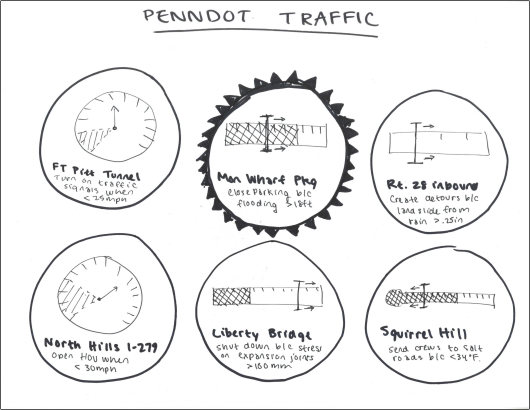 PENNDOT TRAFFIC
FT Pitt Tunnel
Turn on traffic
signals when
< 25mph
Mon Wharf Pkg
close parking b/c
flooding > 18ft
Rt. 28 inbound
Create detours b/c
landslide from
rain > .25in
North Hills I-279
open HOV when
< 30mph
Liberty Bridge
shut down b/c stress
on expansion joints
>100mm
Squirrel Hill
send crews to salt
roads b/c <34°F.